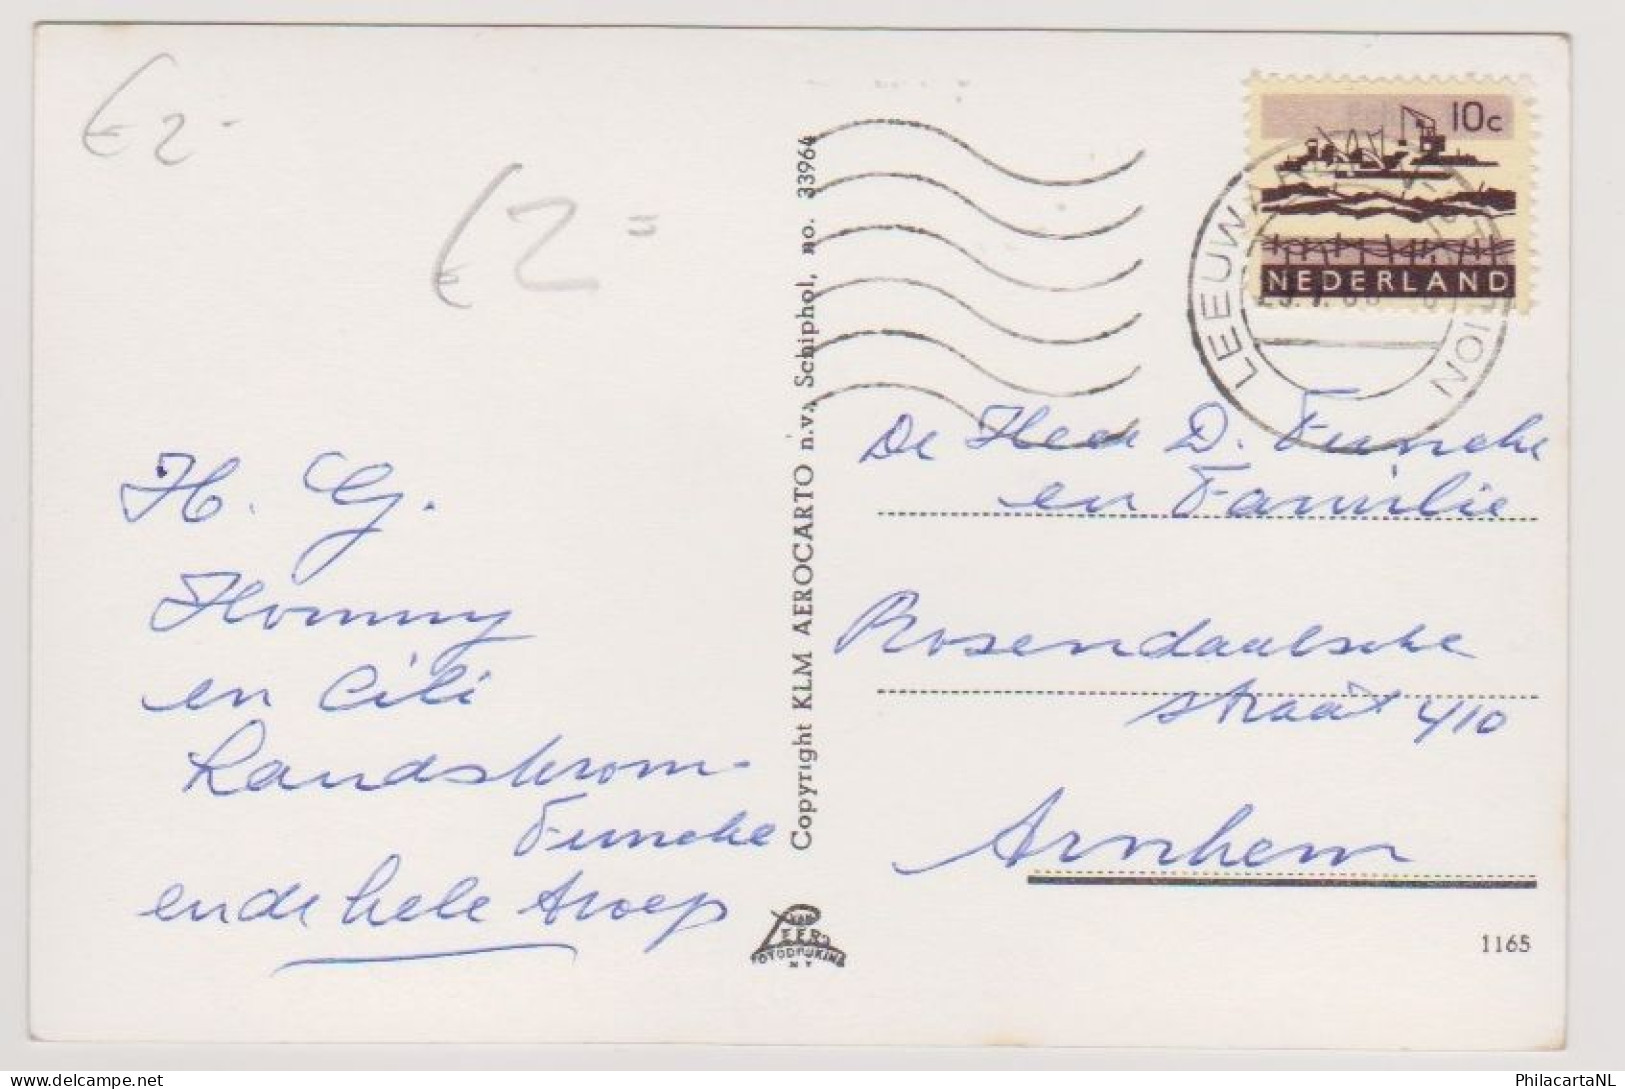 € 2 -
€ 2 =
H. G.
Hommy
en Cili
Landstrom-
Funcke
en de hele troep
Copyright KLM AEROCARTO n.v., Schiphol, no. 33964
VAN
LEER'S
FOTODRUKIND.
N.V.
10c
NEDERLAND
LEEUWARDEN-STATION
De Heer D. Funcke
en Familie
Rosendaalsche
straat 410
Arnhem
1165
PhilacartaNL